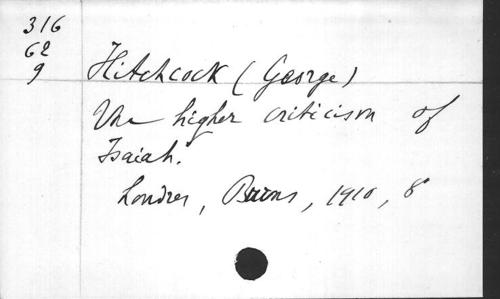 316
62
9
Hitchcock (George)
The higher criticism of
Isaiah.
Londres, Burns, 1910, 8°